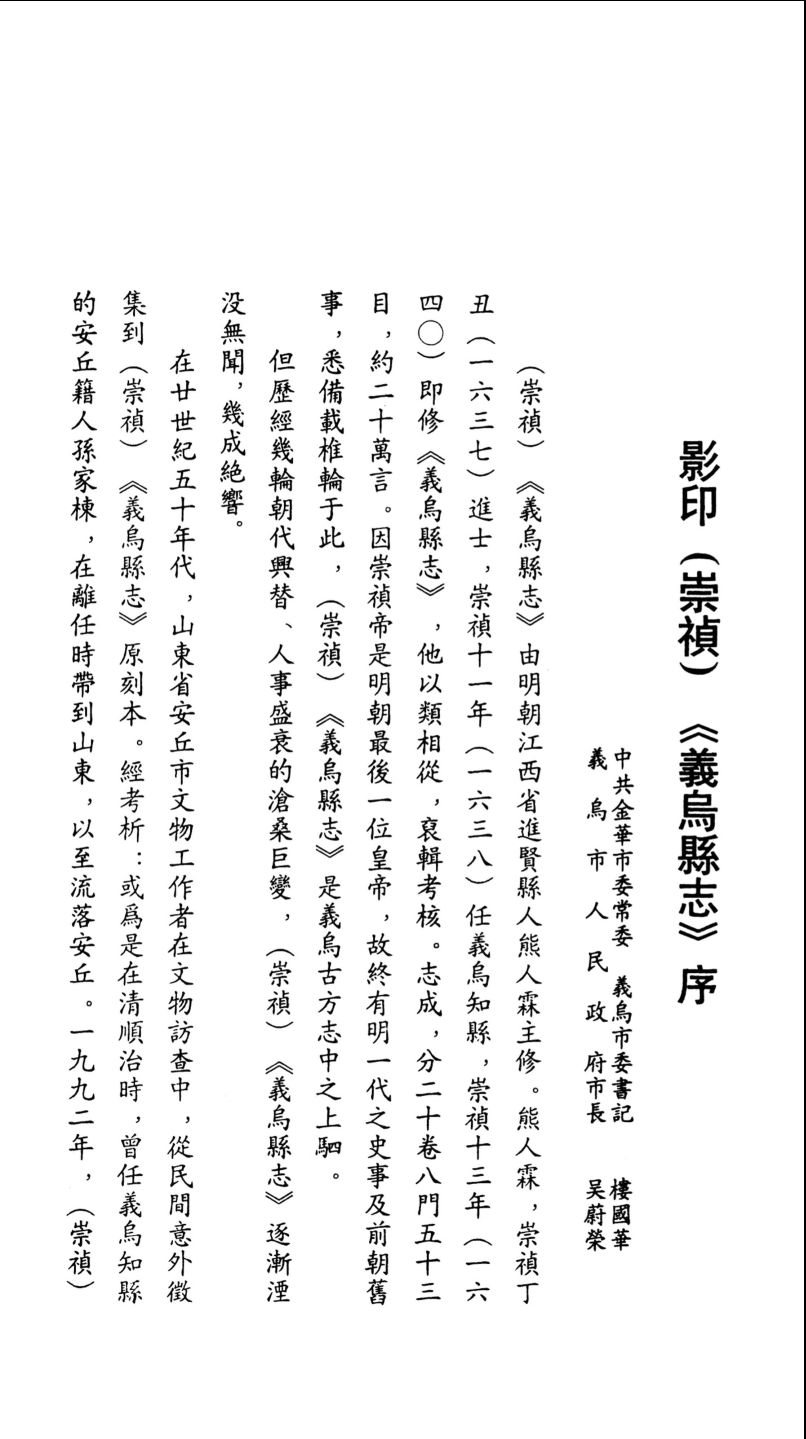 影印（崇禎）《義烏縣志》序
中共金華市委常委　義烏市委書記　樓國華
義烏市人民政府市長　吴蔚榮
（崇禎）《義烏縣志》由明朝江西省進賢縣人熊人霖主修。熊人霖，崇禎丁
丑（一六三七）進士，崇禎十一年（一六三八）任義烏知縣，崇禎十三年（一六
四〇）即修《義烏縣志》，他以類相從，裒輯考核。志成，分二十卷八門五十三
目，約二十萬言。因崇禎帝是明朝最後一位皇帝，故終有明一代之史事及前朝舊
事，悉備載椎輪于此，（崇禎）《義烏縣志》是義烏古方志中之上駟。
但歷經幾輪朝代興替、人事盛衰的滄桑巨變，（崇禎）《義烏縣志》逐漸湮
没無聞，幾成絶響。
在廿世紀五十年代，山東省安丘市文物工作者在文物訪查中，從民間意外徵
集到（崇禎）《義烏縣志》原刻本。經考析：或爲是在清順治時，曾任義烏知縣
的安丘籍人孫家棟，在離任時帶到山東，以至流落安丘。一九九二年，（崇禎）